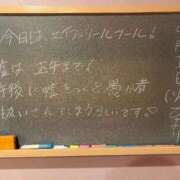 今日は、エイプリールフール！
嘘は 正午まで！
午後に嘘をつくと愚か者
扱いされてしまうらしいです♡